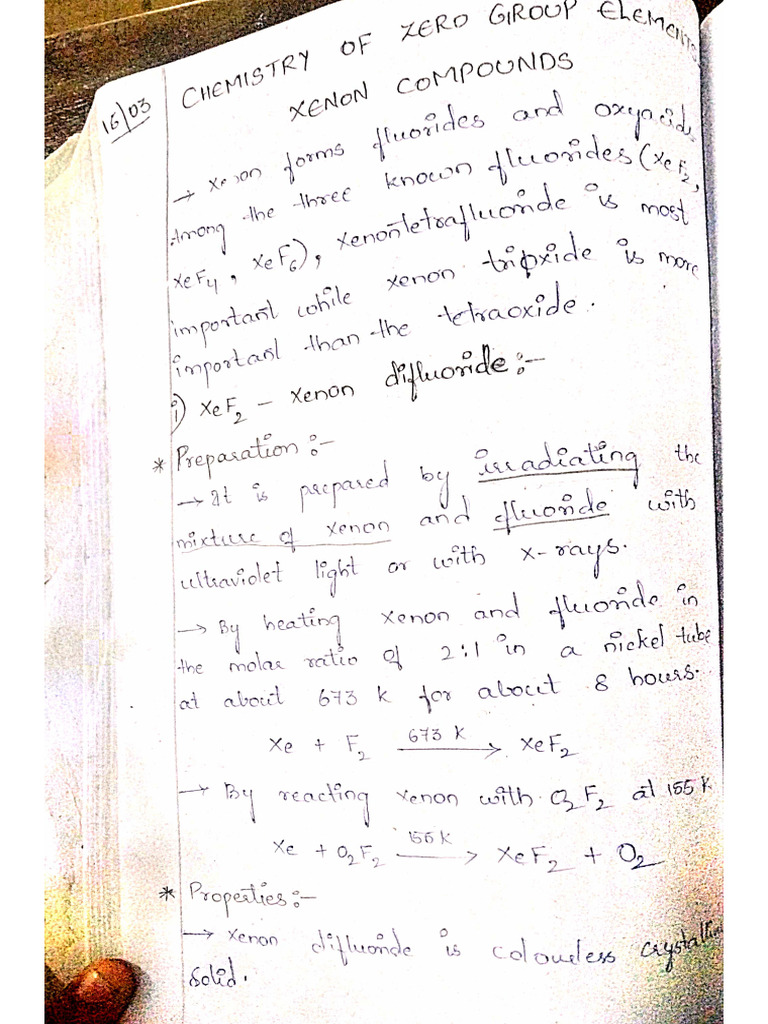 16/03
CHEMISTRY OF ZERO GROUP ELEMENTS
XENON COMPOUNDS
→ Xenon forms fluorides and oxyacids.
Among the three known fluorides (XeF2,
XeF4, XeF6), xenontetrafluoride is most
important while xenon trioxide is more
important than the tetraoxide.
i) XeF2 – Xenon difluoride:-
* Preparation :-
→ It is prepared by irradiating the
mixture of xenon and fluoride with
ultraviolet light or with x-rays.
→ By heating xenon and fluoride in
the molar ratio of 2:1 in a nickel tube
at about 673 K for about 8 hours.
Xe + F2 —673 K→ XeF2
→ By reacting xenon with O2F2 at 155 K
Xe + O2F2 —155 K→ XeF2 + O2
* Properties:-
→ Xenon difluoride is colourless crystalline
solid.